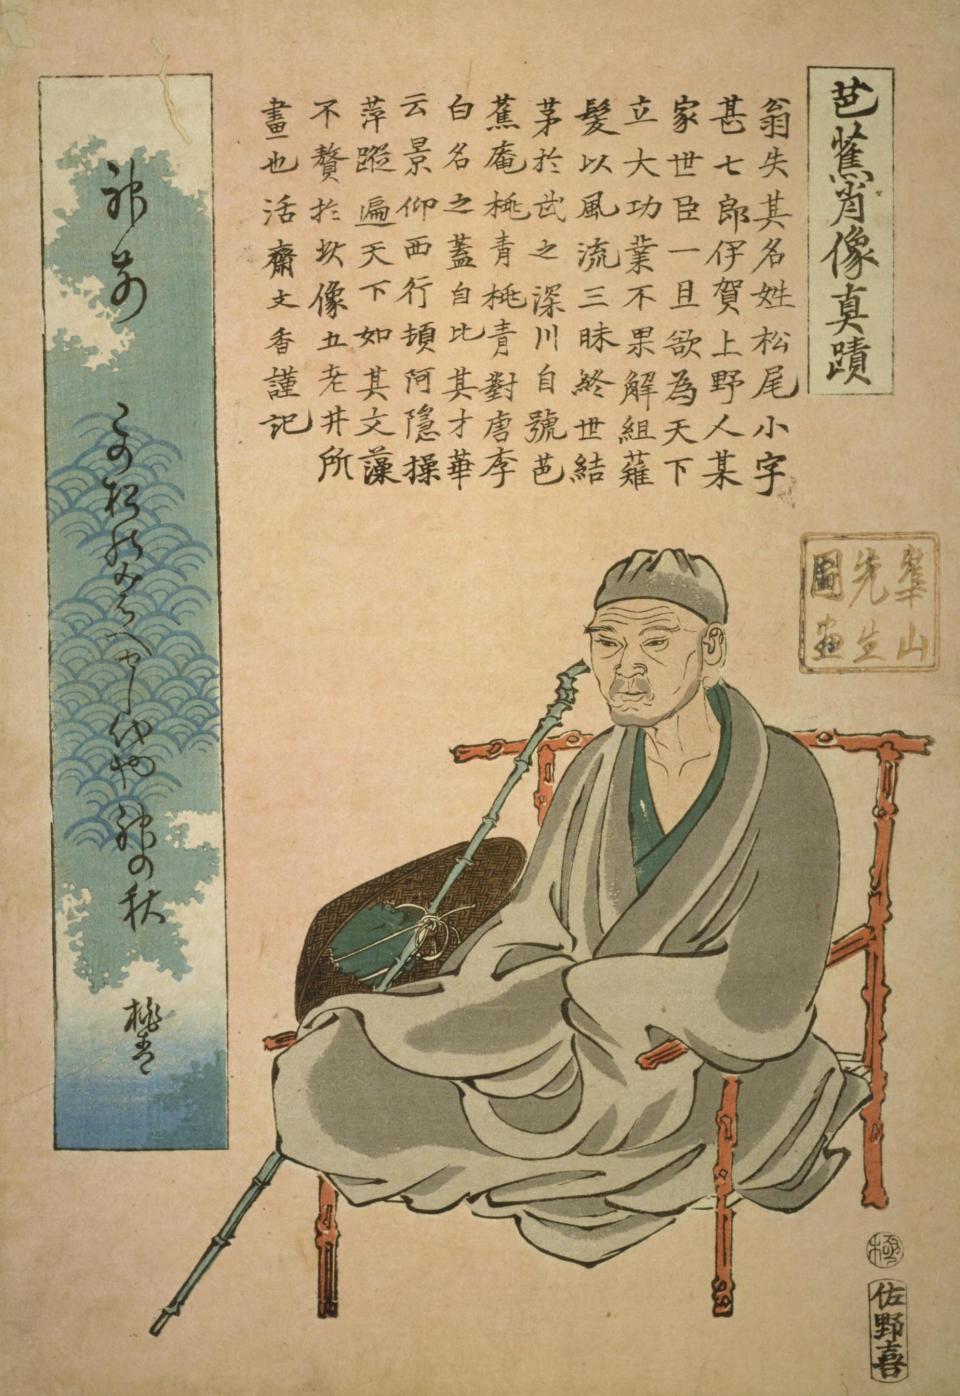 芭蕉肖像真蹟
翁失其名姓松尾小字
甚七郎伊賀上野人某
家世臣一旦欲為天下
立大功業不果解組薙
髪以風流三昧終世結
茅於武之深川自號芭
蕉庵桃青桃青對唐李
白名之蓋自比其才華
云景仰西行頓阿隠操
萍蹤遍天下如其文藻
不贅於此像五老井所
畫也活齋文香謹記
崋山
先生
圖画
神前
この松のみはへせし代や神の秋
桃青
極
佐野喜